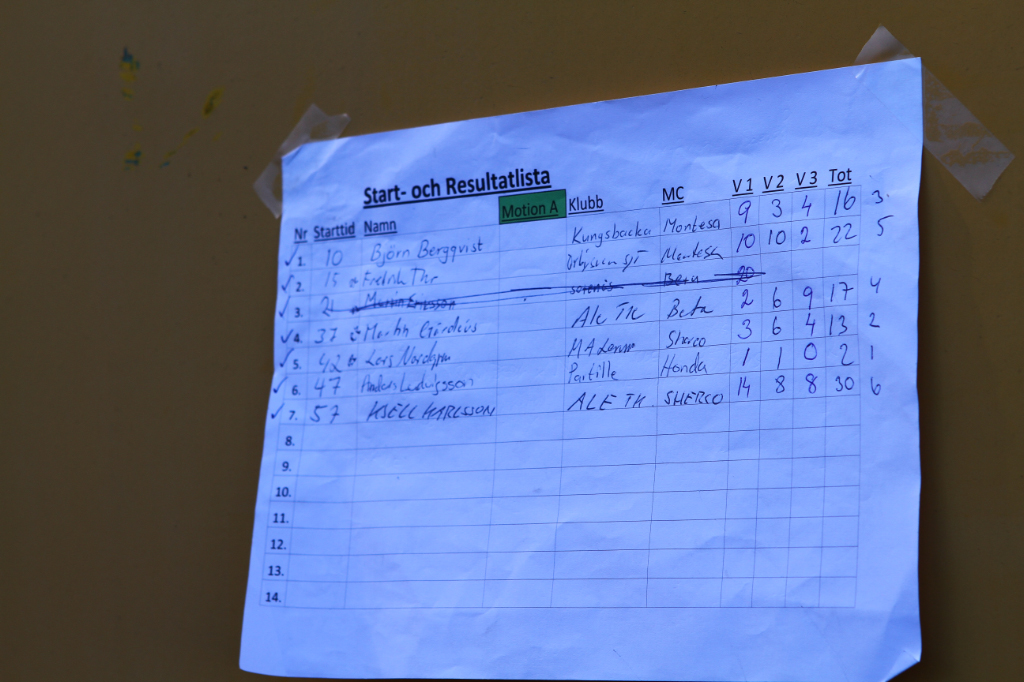 Start- och Resultatlista
Nr Starttid Namn Motion A Klubb MC V 1 V 2 V 3 Tot
1. 10 Björn Bergqvist Kungsbacka Montesa 9 3 4 16 3.
2. 15 Fredrik Montesa 10 10 2 22 5
3. 21 20
4. 37 Ale TK Beta 2 6 9 17 4
5. 42 Lars Nordgren Sherco 3 6 4 13 2
6. 47 Anders Ludvigsson Partille Honda 1 1 0 2 1
7. 57 KJELL KARLSSON ALE TK SHERCO 14 8 8 30 6
8.
9.
10.
11.
12.
13.
14.